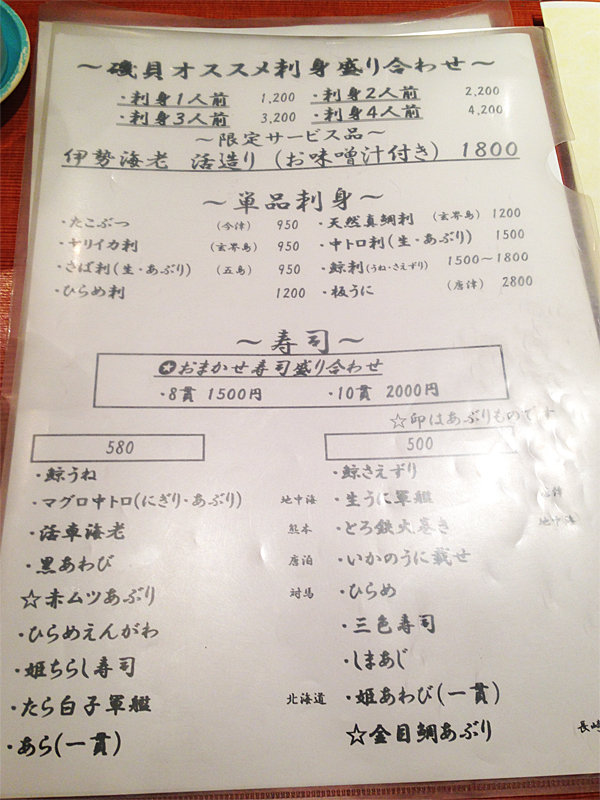 ～磯貝オススメ刺身盛り合わせ～
・刺身1人前 1,200 ・刺身2人前 2,200
・刺身3人前 3,200 ・刺身4人前 4,200
～限定サービス品～
伊勢海老 活造り (お味噌汁付き) 1800
～単品刺身～
・たこぶつ (今津) 950 ・天然真鯛刺 (玄界島) 1200
・ヤリイカ刺 (玄界島) 950 ・中トロ刺(生・あぶり) 1500
・さば刺(生・あぶり) (五島) 950 ・鯨刺(うね・さえずり) 1500～1800
・ひらめ刺 1200 ・板うに (唐津) 2800
～寿司～
✪おまかせ寿司盛り合わせ
・8貫 1500円 ・10貫 2000円
☆印はあぶりものです
580 500
・鯨うね ・鯨さえずり
・マグロ中トロ(にぎり・あぶり) 地中海 ・生うに軍艦
・活車海老 熊本 ・とろ鉄火巻き 地中海
・黒あわび 唐泊 ・いかのうに載せ
☆赤ムツあぶり 対馬 ・ひらめ
・ひらめえんがわ ・三色寿司
・姫ちらし寿司 ・しまあじ
・たら白子軍艦 北海道 ・姫あわび(一貫)
・あら(一貫) ☆金目鯛あぶり 長崎